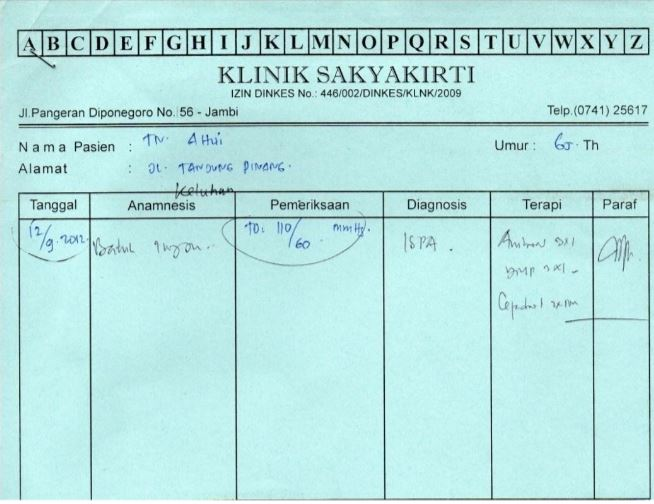 A B C D E F G H I J K L M N O P Q R S T U V W X Y Z
KLINIK SAKYAKIRTI
IZIN DINKES No.: 446/002/DINKES/KLNK/2009
Jl.Pangeran Diponegoro No. 56 - Jambi Telp.(0741) 25617
Nama Pasien : TN. AHui Umur : Th
Alamat : JL. TANDUNG PINANG.
Keluhan
Tanggal Anamnesis Pemeriksaan Diagnosis Terapi Paraf
12/9.2012 Batuk TD: 110/60 mmHg. ISPA. 3x1
DMP 3x1